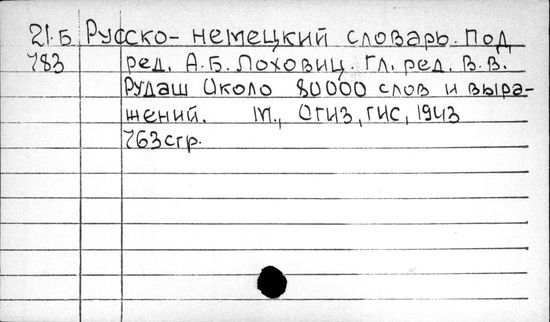 21.Б Русско-немецкий словарь. Под
783 ред. А.Б. Лоховиц. Гл. ред. В.В.
Рудаш Около 80000 слов и выра-
жений. М., Огиз, гис, 1943
763стр.